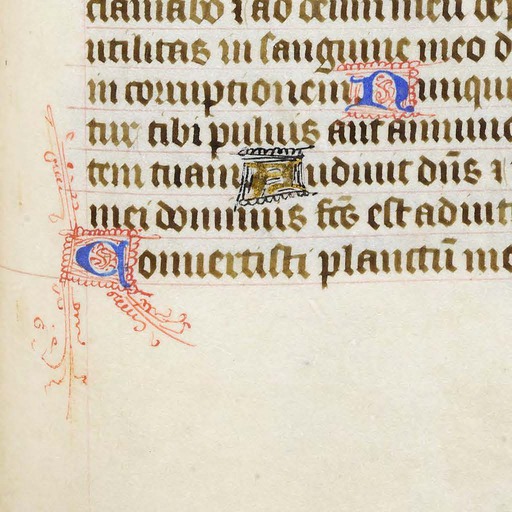 clamabo ⁊ ad deum meū dep
utilitas in sanguine meo d
in corruptionem Numqui
tur tibi puluis aut annunc
tem tuam Audiuit dn̄s ⁊
mei dominus fcs̄ est adiut
Conuertisti planctū me